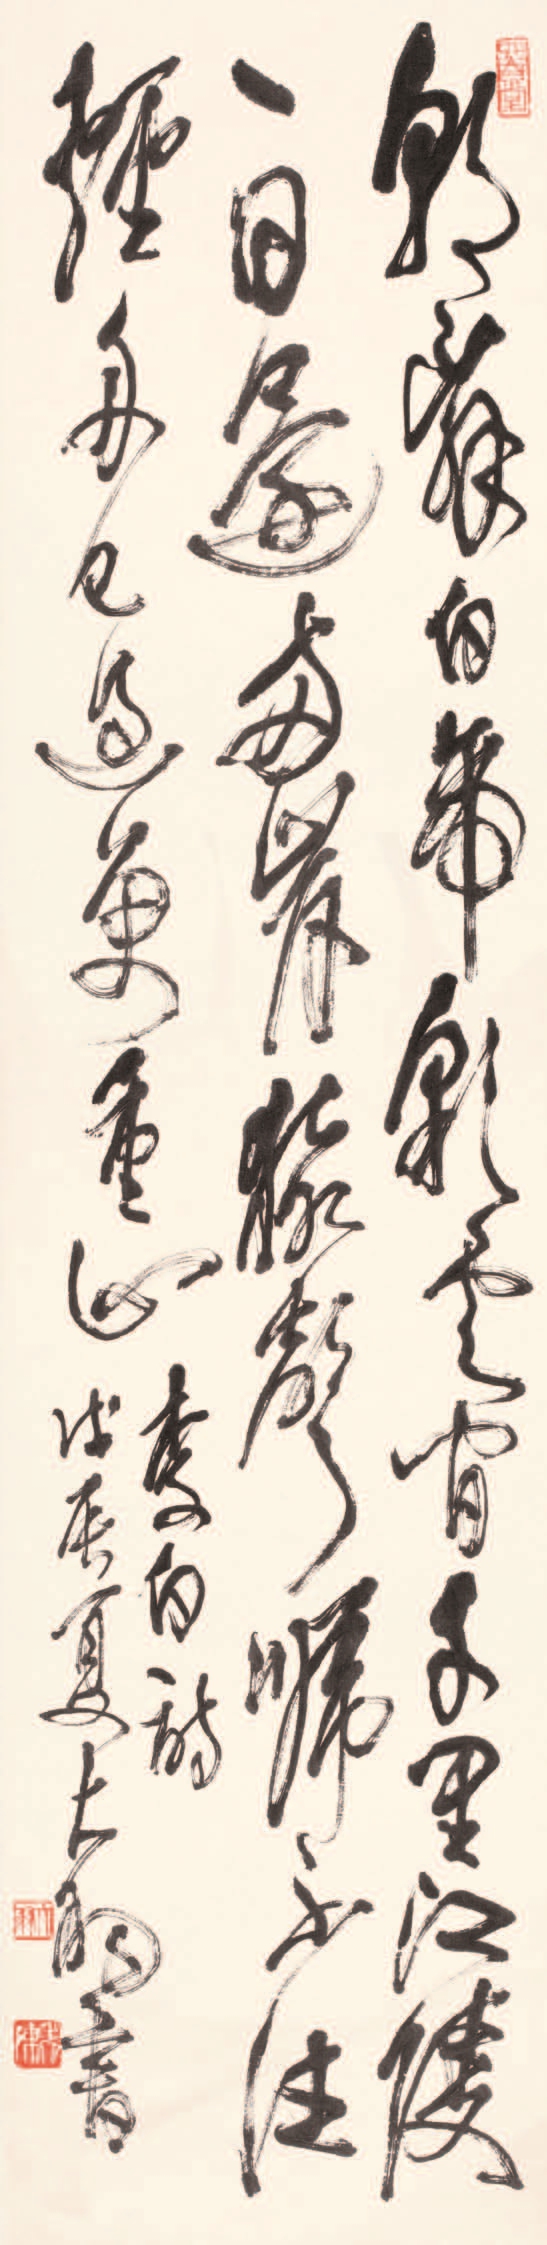 朝辭白帝彩雲間千里江陵
一日還兩岸猿聲啼不住
輕舟已過萬重山
李白詩
戊辰夏大羽書